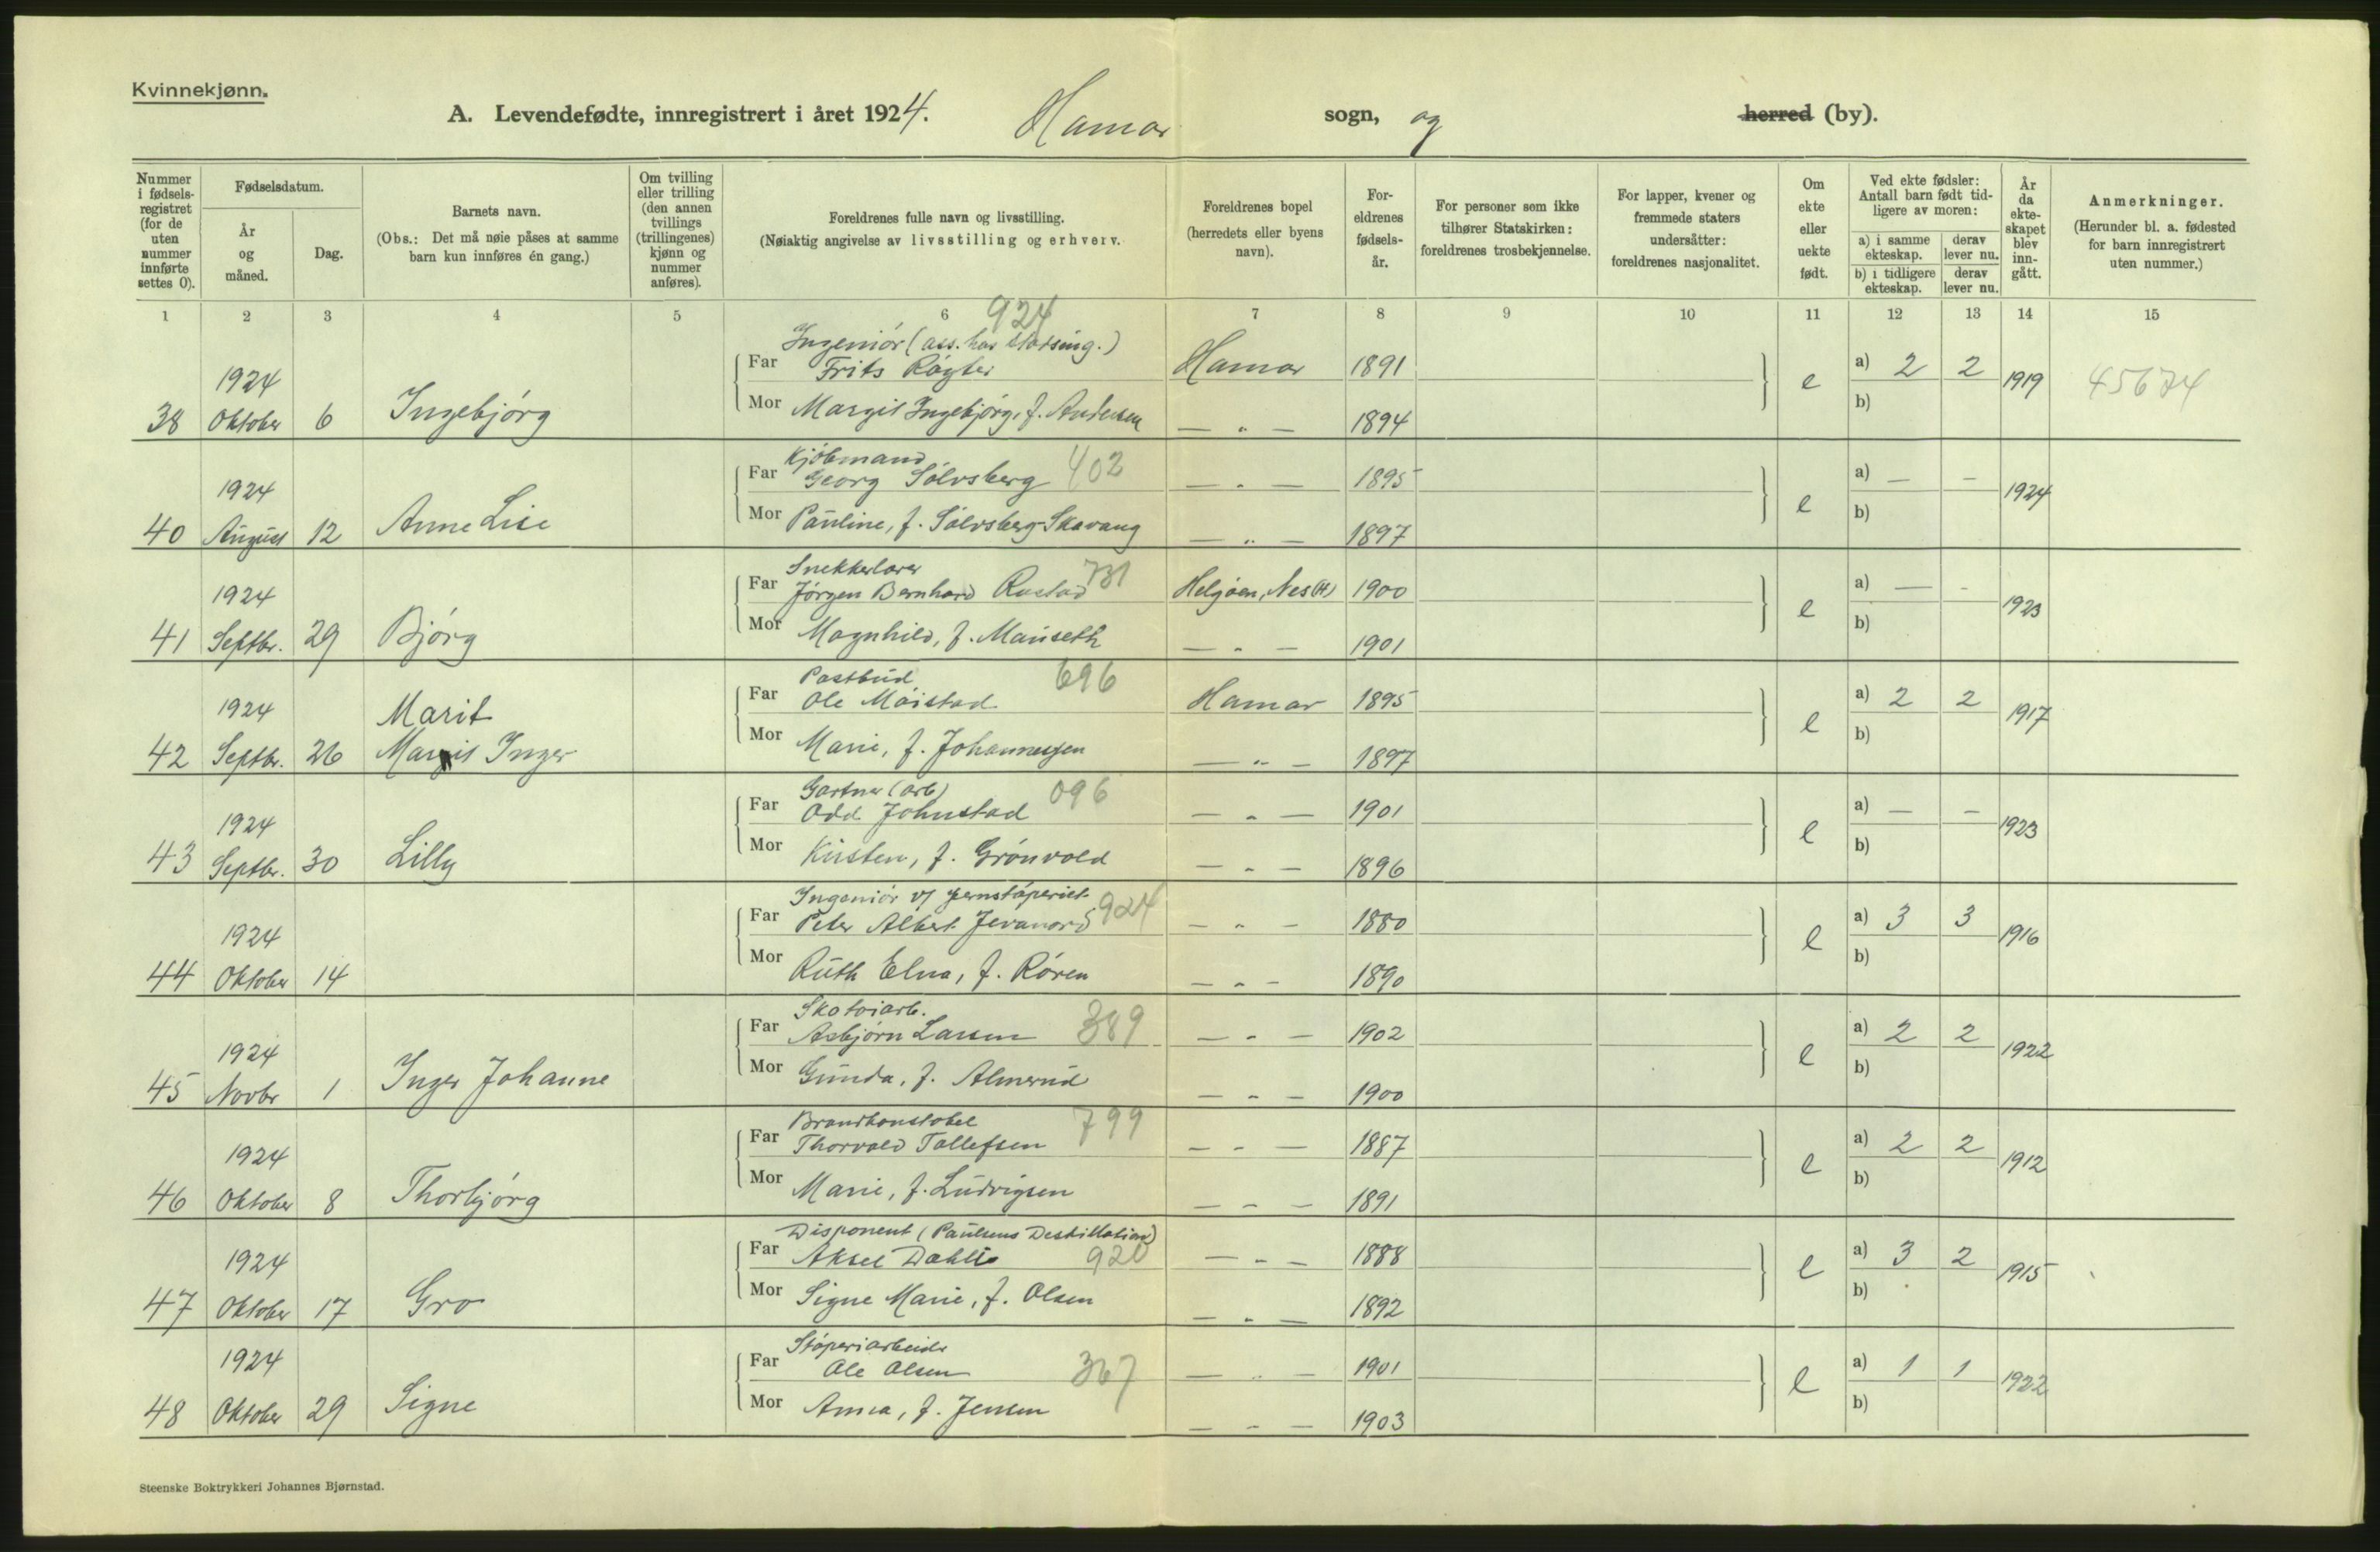 Kvinnekjønn.
A. Levendefødte, innregistrert i året 1924. Hamar sogn, og herred (by).
Nummer i fødsels-registret (for de uten nummer innførte settes 0).
Fødselsdatum.
År og måned.
Dag.
Barnets navn.
(Obs.: Det må nøie påses at samme barn kun innføres én gang.)
Om tvilling eller trilling (den annen tvillings (trillingenes) kjønn og nummer anføres).
Foreldrenes fulle navn og livsstilling.
(Nøiaktig angivelse av livsstilling og erhverv.
Foreldrenes bopel (herredets eller byens navn).
For-eldrenes fødsels-år.
For personer som ikke tilhører Statskirken: foreldrenes trosbekjennelse.
For lapper, kvener og fremmede staters undersåtter: foreldrenes nasjonalitet.
Om ekte eller uekte født.
Ved ekte fødsler: Antall barn født tid-ligere av moren:
a) i samme ekteskap. derav lever nu.
b) i tidligere ekteskap. derav lever nu.
År da ekte-skapet blev inn-gått.
Anmerkninger.
(Herunder bl. a. fødested for barn innregistrert uten nummer.)
1 2 3 4 5 6 7 8 9 10 11 12 13 14 15
924
Ingeniør (ass. hos stadsing.)
1924 Far Frits Røgter Hamar 1891 a) 2 2
38 Oktober 6 Ingebjørg Mor Margit Ingebjørg, f. Andersen — " — 1894 e b) 1919 45674
Kjøbmand
1924 Far Georg Sølvsberg 402 — " — 1895 a) — —
40 August 12 Anne Lise Mor Pauline, f. Sølvsberg Skavang — " — 1897 e b) 1924
Snekkerlærer
1924 Far Jørgen Bernhard Rustad 731 Helgøen, Nes (H) 1900 a) — -
41 Septbr. 29 Bjørg Mor Magnhild, f. Mauseth — " — 1901 e b) 1923
Postbud
1924 Marit Far Ole Moistad 696 Hamar 1895 a) 2 2
42 Septbr. 26 Margit Inger Mor Marie, f. Johannessen — " — 1897 e b) 1917
Gartner (arb)
1924 Far Odd Johnstad 096 — " — 1901 a) — —
43 Septbr. 30 Lilly Mor Kirsten, f. Grønvold — " — 1896 e b) 1923
Ingeniør v/ Jernstøperiet
1924 Far Peter Albert Jevanord 924 — " — 1880 a) 3 3
44 Oktober 14 Mor Ruth Elna, f. Røren — " — 1890 e b) 1916
Skotøiarb.
1924 Far Asbjørn Larsen 389 — " — 1902 a) 2 2
45 Novbr 1 Inger Johanne Mor Gunda, f. Almerud — " — 1900 e b) 1922
Brandkonstabel
1924 Far Thorvald Tollefsen 799 — " — 1887 a) 2 2
46 Oktober 8 Thorbjørg Mor Marie, f. Ludvigsen — " — 1891 e b) 1912
Disponent (Paulsens Destillation)
1924 Far Aksel Dahlie 920 — " — 1888 a) 3 2
47 Oktober 17 Gro Mor Signe Marie, f. Olsen — " — 1892 e b) 1915
Støperiarbeider
1924 Far Ole Olsen 367 — " — 1901 a) 1 1
48 Oktober 29 Signe Mor Anna, f. Jensen — " — 1903 e b) 1922
Steenske Boktrykkeri Johannes Bjørnstad.